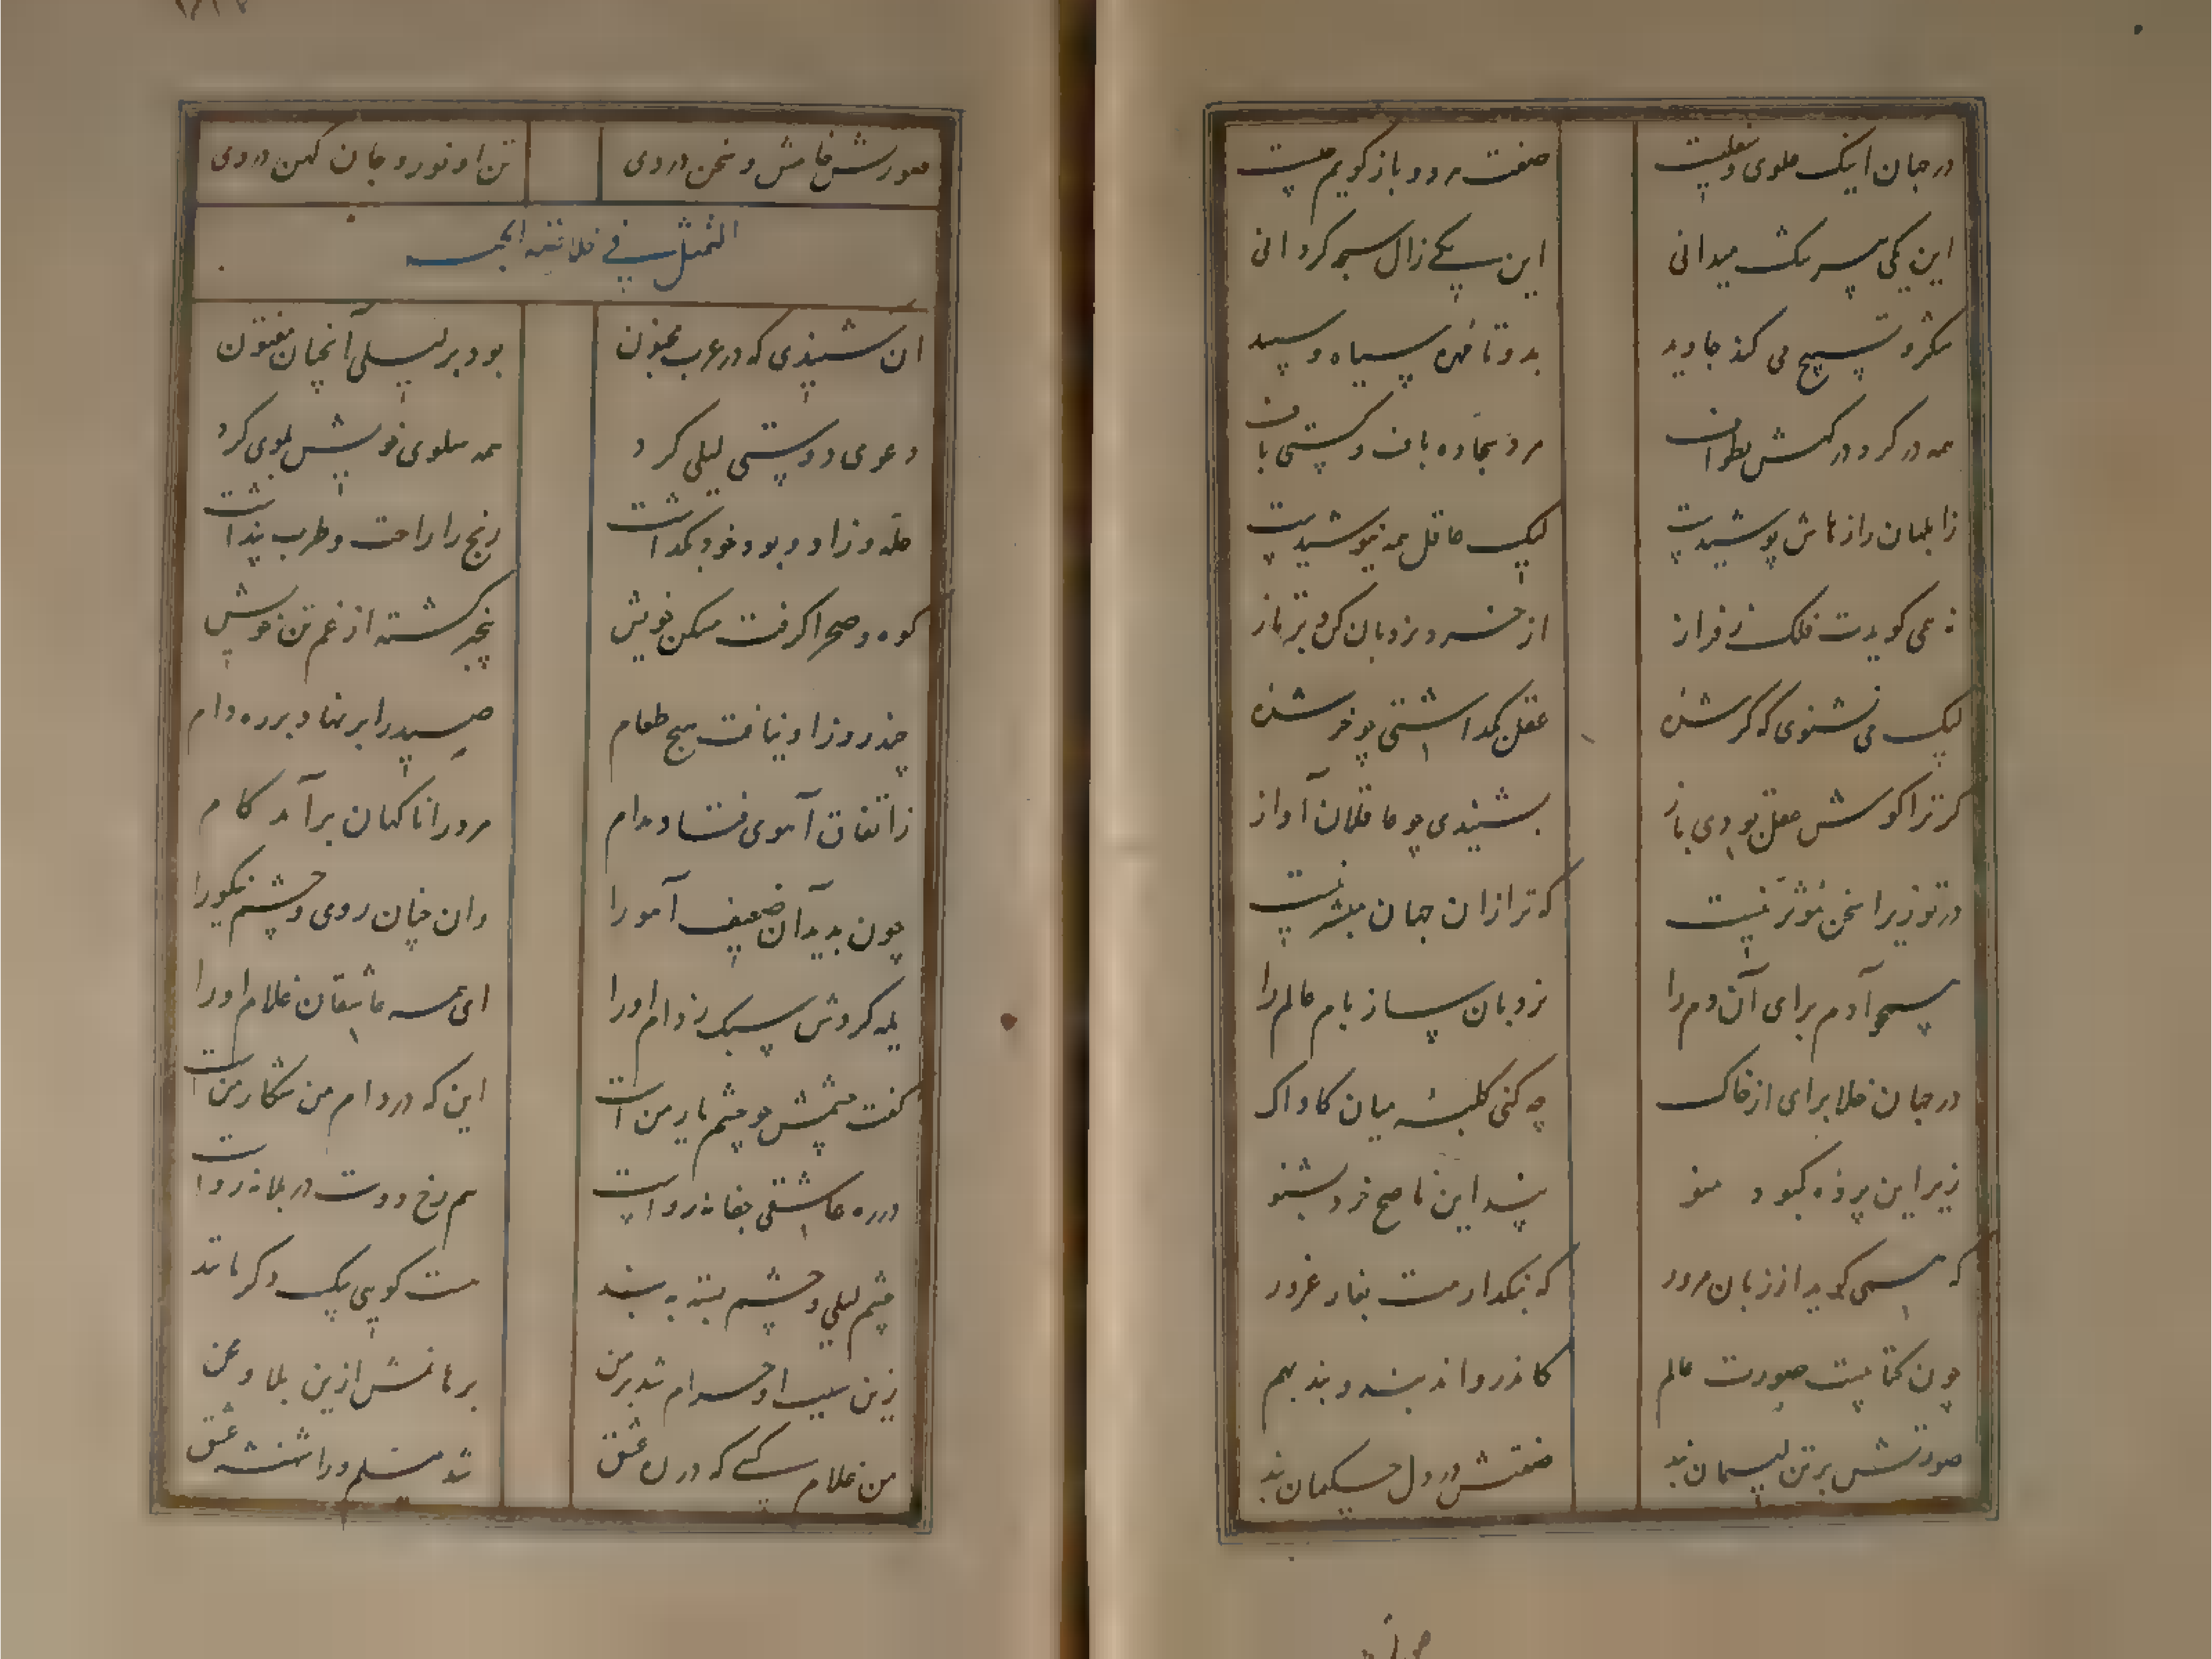 در جهان اینک علوی و سفلیست صفت هر دو باز گویم چیست
این یکی پیر سگ میدانی این یکی زال سحر گردانی
مکر و تسبیح می کند جاوید بدو تا مهره سیاه و سپید
همه در گرد در کهش بطواف مرد سجاده باف و کستی باف
زابلهان راز ماش پوشیدست لیک عاقل همه نیوشیدست
نه همی گویدت فلک ز فراز از خرد نردبان کن و بر تاز
لیک می نشنوی که کر شده عقل بگذاشتی چو خر شده
گر ترا گوش عقل بودی باز بشنیدی چو عاقلان آواز
در تو زیرا سخن مؤثر نیست که ترا زان جهان مبشر نیست
همچو آدم برای آن دم را نردبان ساز بام عالم را
در جهان خلا برای از خاک چه کنی کلبه میان کاواک
زیر این پرده کبود مغنو پند این ناصح خرد بشنو
که همی گوید از زبان مرور که نگدارمت بغار غرور
چون کتابیست صورت عالم کاندرو اند بند و پند بهم
صورتش بر تن لئیمان بند صفتش در دل حکیمان پند
صورتش خامش و سخن در وی تن او نو رو جان کهن در وی
التمثل فی خلاقته الحب
ان شنیدی که در عرب مجنون بود بر لیلی آنچنان مفتون
دعوی دوستی لیلی کرد همه سلوی خویش بلوی کرد
حله و زاد و بود خود بگذاشت رنج را راحت و طرب پنداشت
کوه و صحرا گرفت مسکن خویش بیخبر گشته از غم تن خویش
چند روز او نیافت هیچ طعام صید را بر نهاد بر ره دام
ز اتفاق آهوی فتاد مدام مرد را ناکهان بر آمد کام
چون بدید آن ضعیف آهو را وان چنان روی و چشم نیکو را
یله کردش سبک ز دام او را ای همه عاشقان غلام او را
گفت چشمش چو چشم یار من است این که در دام من شکار من است
در ره عاشقی جفا نه رواست هم رخ دوست در بلا نه رواست
چشم لیلی و چشم بسته به بند هست گویی بیک دگر مانند
زین سبب او حرام شد بر من برهانمش ازین بلا و محن
من غلام کسی که در ره عشق شد مسلم ورا شهنشه عشق